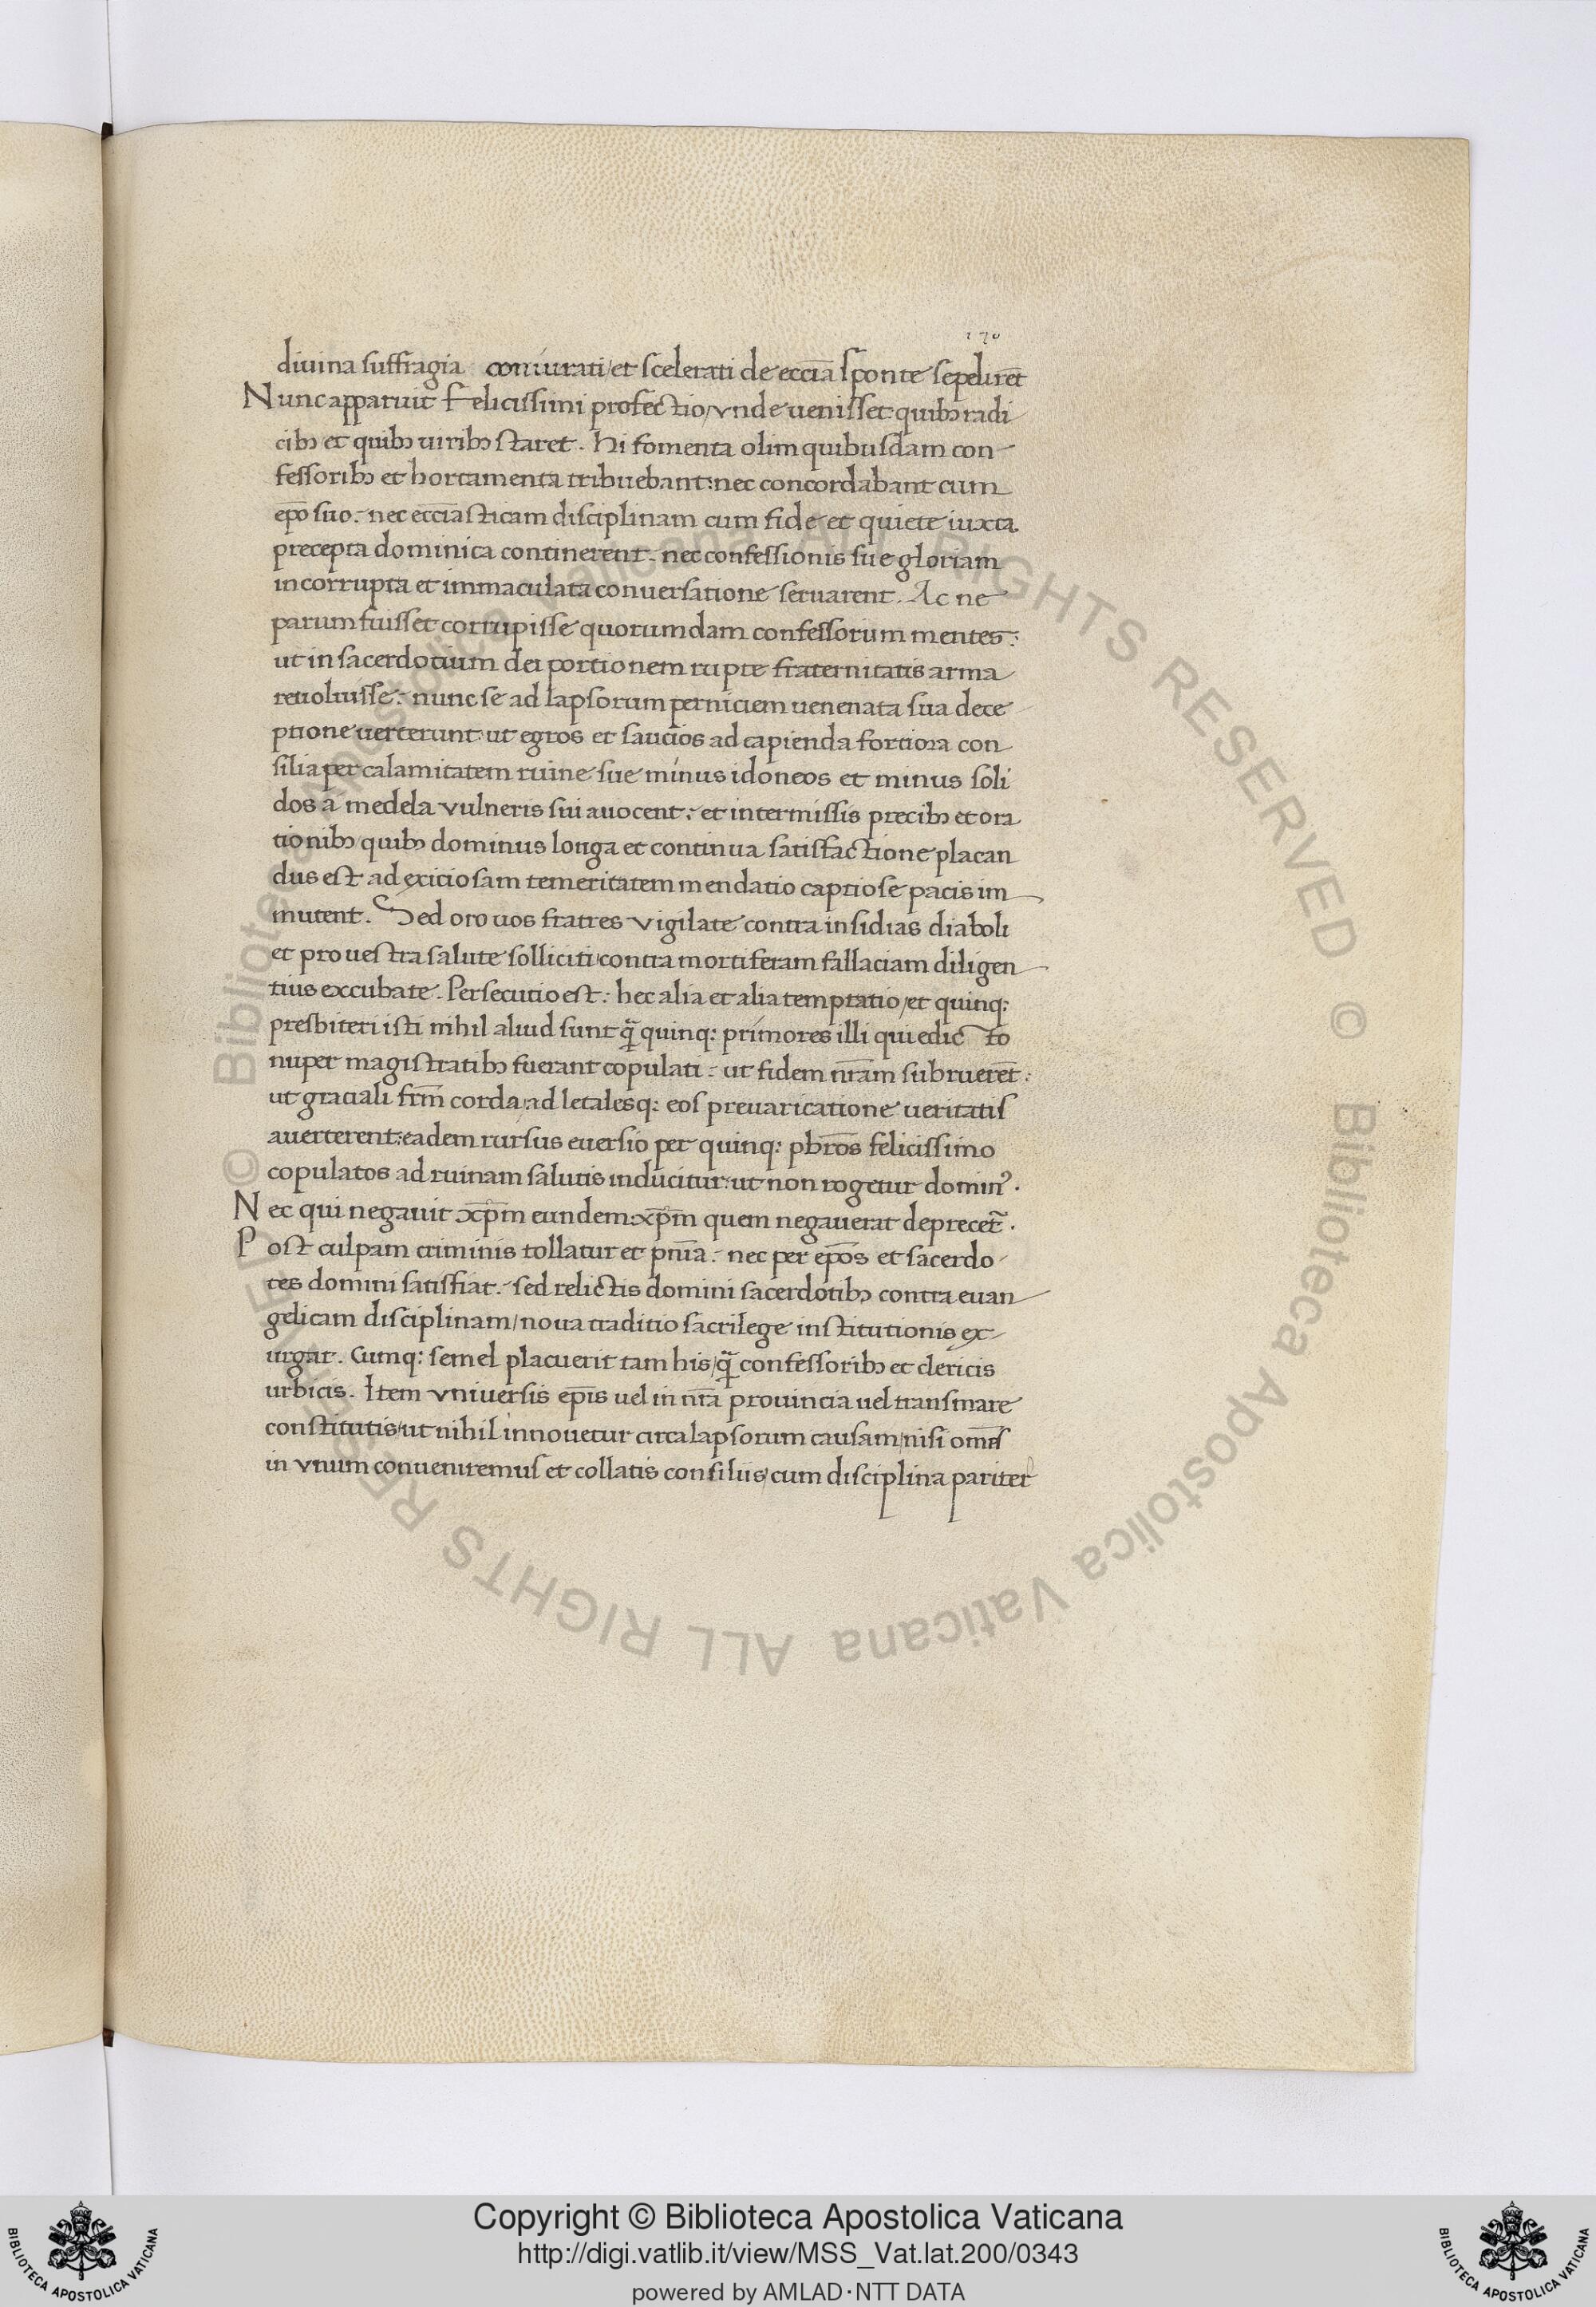 170
diuina suffragia coniurati/et scelerati de ecci̅a sponte sepelire̅t
Nunc apparuit Felicissimi profectio/vnde uenisset quibꝫ radi
cibꝫ et quibꝫ uiribꝫ staret. Hi fomenta olim quibusdam con-
fessoribꝫ et hortamenta tribuebant: nec concordabant cum
ep̅o suo.- nec eccl̅iasticam disciplinam cum fide et quiete iuxta
precepta dominica continerent.- nec confessionis sue gloriam
incorrupta et immaculata conuersatione seruarent. Ac ne
parum fuisset corrupisse quorumdam confessorum mentes:
ut in sacerdotium dei portionem rupte fraternitatis arma
reuoluisse.- nunc se ad lapsorum perniciem uenenata sua dece
ptione uerterunt ut egros et saucios ad capienda fortiora con
silia per calamitatem ruine sue minus idoneos et minus soli
dos a medela vulneris sui auocent.- et intermissis precibꝫ et ora
tionibꝫ quibꝫ dominus longa et continua satisfactione placan
dus est ad exitiosam temeritatem mendatio captiose pacis im
mutent. Sed oro uos fratres vigilate contra insidias diaboli
et pro uestra salute solliciti/contra mortiferam fallaciam diligen
tius excubate. Persecutio est: hec alia et alia temptatio/et quinq:
presbiteri isti nihil aliud sunt q̃ quinq: primores illi qui edic to
nuper magistratibꝫ fuerant copulati.- ut fidem nr̅am subruere̅t:
ut graciali fr̅m corda/ad letalesq: eos preuaricatione ueritatis
auerterent: eadem rursus euersio per quinq: pbr̅os felicissimo
copulatos ad ruinam salutis inducitur: ut non rogetur dominꝰ.
Nec qui negauit xp̅m eundem: xp̅m quem negauerat deprecet̅.
Post culpam criminis tollatur et pn̅ia.- nec per ep̅os et sacerdo
tes domini satisfiat.- sed relictis domini sacerdotibꝫ contra euan
gelicam disciplinam/noua traditio sacrilege institutionis ex
urgat. Cumq: semel placuerit tam his/q̃ confessoribꝫ et clericis
urbicis. Item vniuersis ep̅is uel in nr̅a prouincia uel transmare
constitutis/ut nihil innouetur circa lapsorum causam/nisi omn̅s
in vnum conueniremus et collatis consiliis/cum disciplina pariter
© Biblioteca Apostolica Vaticana ALL RIGHTS RESERVED © Biblioteca Apostolica Vaticana ALL RIGHTS RESERVED
Copyright © Biblioteca Apostolica Vaticana
http://digi.vatlib.it/view/MSS_Vat.lat.200/0343
powered by AMLAD·NTT DATA
BIBLIOTECA APOSTOLICA VATICANA
BIBLIOTECA APOSTOLICA VATICANA